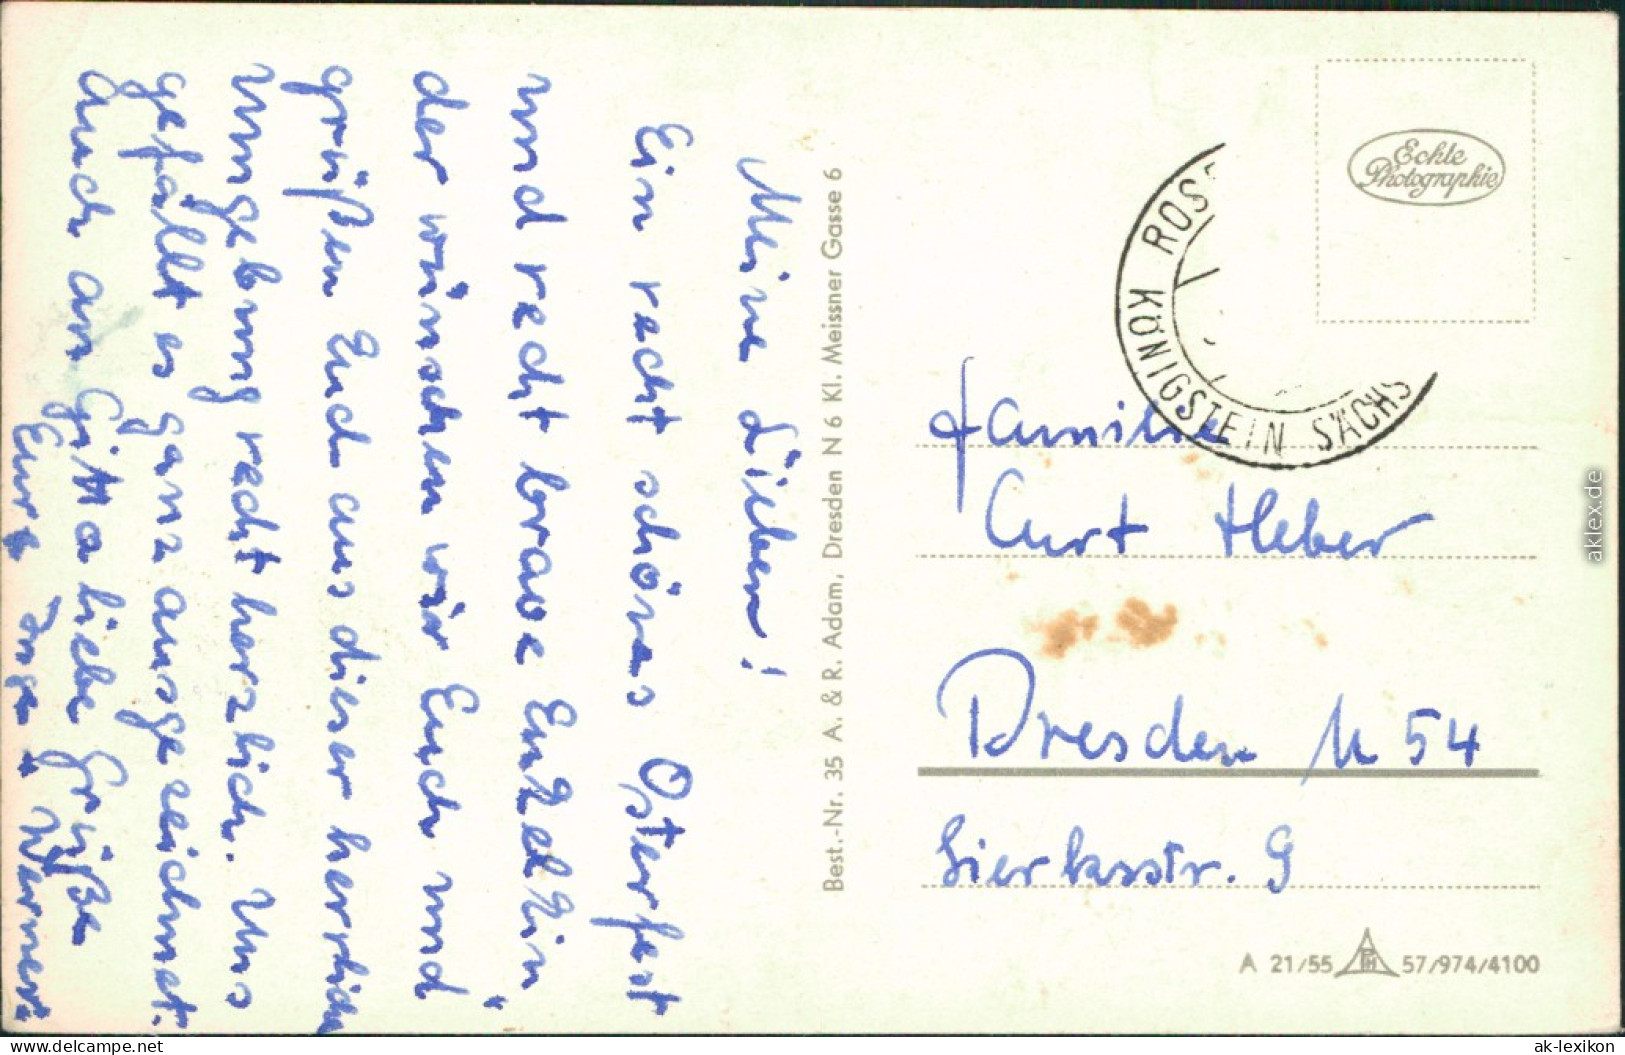 Meine Lieben!
Ein recht schönes Osterfest
und recht brave Enkelkin
der wünschen wir Euch und
grüßen Euch aus dieser herrlichen
Umgebung recht herzlich. Uns
gefällt es ganz ausgezeichnet.
Auch an Gitta liebe Grüße
Eure Inge u Werner.
Best.-Nr. 35 A. & R. Adam, Dresden N 6 Kl. Meissner Gasse 6
Echte
Photographie
KÖNIGSTEIN SÄCHS
Familie
Curt Heber
Dresden N 54
9
A 21/55 57/974/4100
aklex.de
www.delcampe.net
ak-lexikon